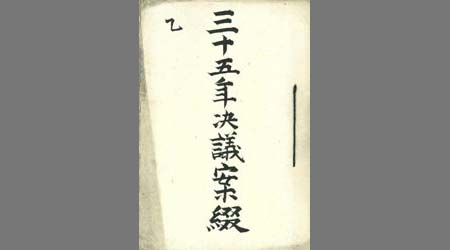 三十五年决議案綴
乙